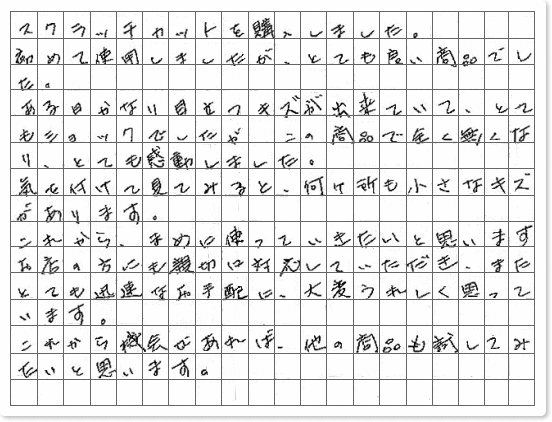 スクラッチャットを購入しました。
初めて使用しましたが、とても良い商品でし
た。
ある日かなり目立つキズが出来ていて、とて
もショックでしたが、この商品で全く無くな
り、とても感動しました。
気を付けて見てみると、何ヶ所も小さなキズ
があります。
これから、まめに使っていきたいと思います
お店の方にも親切に対応していただき、また
とても迅速なお手配に、大変うれしく思って
います。
これから機会があれば、他の商品も試してみ
たいと思います。